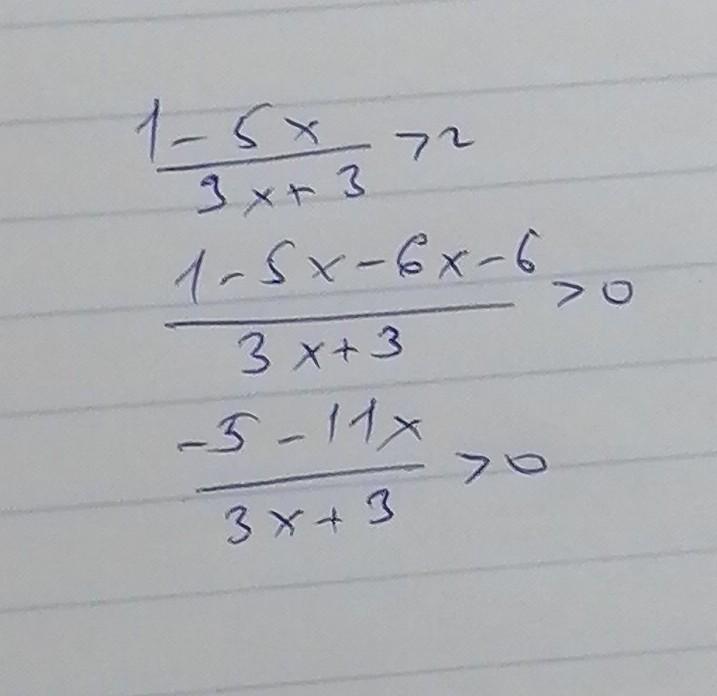 1-5x
3x+3 >2
1-5x-6x-6
3x+3 >0
-5-11x
3x+3 >0